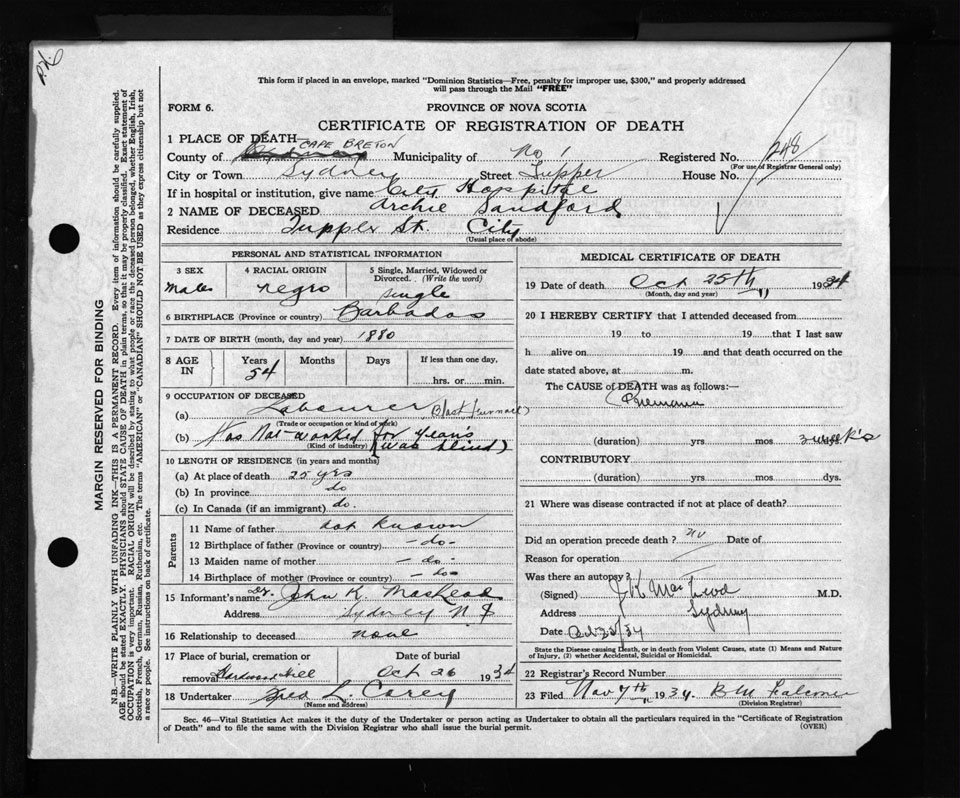 This form if placed in an envelope, marked "Dominion Statistics—Free, penalty for improper use, $300," and properly addressed
will pass through the Mail "FREE"
FORM 6.
PROVINCE OF NOVA SCOTIA
CERTIFICATE OF REGISTRATION OF DEATH
1 PLACE OF DEATH— CAPE BRETON
County of Municipality of No 1 Registered No. 248
(For use of Registrar General only)
City or Town Sydney Street Tupper House No.
If in hospital or institution, give name City Hospital
2 NAME OF DECEASED Archie Sandford
Residence Tupper St. City
(Usual place of abode)
PERSONAL AND STATISTICAL INFORMATION
3 SEX 4 RACIAL ORIGIN 5 Single, Married, Widowed or Divorced. (Write the word)
Male negro single
6 BIRTHPLACE (Province or country) Barbados
7 DATE OF BIRTH (month, day and year) 1880
8 AGE IN Years Months Days If less than one day,
54 hrs. or min.
9 OCCUPATION OF DECEASED
(a) Labourer (Blast Furnace)
(Trade or occupation or kind of work)
(b) Has Not worked for years
(Kind of industry) (was blind)
10 LENGTH OF RESIDENCE (in years and months)
(a) At place of death 25 yrs
(b) In province do
(c) In Canada (if an immigrant) do.
Parents
11 Name of father not known
12 Birthplace of father (Province or country) - do -
13 Maiden name of mother - do -
14 Birthplace of mother (Province or country) - do -
15 Informant's name Dr. John K. MacLeod
Address Sydney N.S
16 Relationship to deceased none
17 Place of burial, cremation or removal Date of burial
Hardwood Hill Oct 26 1934
18 Undertaker Fred L. Corey
(Name and address)
MEDICAL CERTIFICATE OF DEATH
19 Date of death Oct 25th, 1934
(Month, day and year)
20 I HEREBY CERTIFY that I attended deceased from
19 to 19 that I last saw
h alive on 19 and that death occurred on the
date stated above, at m.
The CAUSE of DEATH was as follows:—
(duration) yrs mos 3 week's
CONTRIBUTORY
(duration) yrs mos dys.
21 Where was disease contracted if not at place of death?
Did an operation precede death? no Date of
Reason for operation
Was there an autopsy?
(Signed) J K MacLeod M.D.
Address Sydney
Date
State the Disease causing Death, or in death from Violent Causes, state (1) Means and Nature
of Injury, (2) whether Accidental, Suicidal or Homicidal.
22 Registrar's Record Number
23 Filed Nov 7th, 1934. B M Falconer
(Division Registrar)
Sec. 46—Vital Statistics Act makes it the duty of the Undertaker or person acting as Undertaker to obtain all the particulars required in the "Certificate of Registration
of Death" and to file the same with the Division Registrar who shall issue the burial permit. (OVER)
MARGIN RESERVED FOR BINDING
N.B.—WRITE PLAINLY WITH UNFADING INK—THIS IS A PERMANENT RECORD. Every item of information should be carefully supplied.
AGE should be stated EXACTLY. PHYSICIANS should STATE CAUSE OF DEATH in plain terms, so that it may be properly classified. Exact statement of
OCCUPATION is very important. RACIAL ORIGIN will be described by stating to what people or race the deceased person belonged, whether English, Irish,
Scottish, French, German, Russian, Ruthenian, etc. The terms "AMERICAN" or "CANADIAN" SHOULD NOT BE USED as they express citizenship but not
a race or people. See instructions on back of certificate.